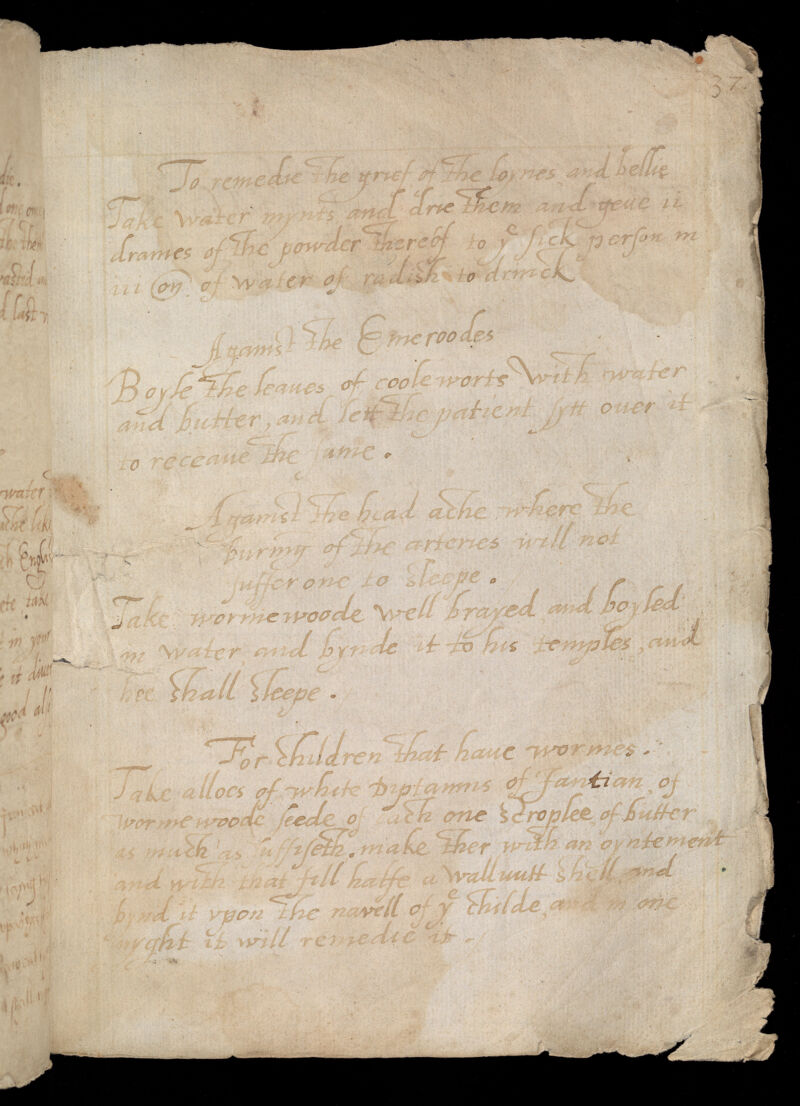 37
To remedie the grief of the loynes and bellie
Take water mynts and drie them and geue ii
drames of the powder thereof to yͤ sick person in
iii on of water of radish to drinck
Against the Emeroodes
Boyle the leaues of cooleworts with water
and butter, and lett the patient sytt ouer it
to receaue the same.
Against the head ache where the
burning of the arteries will not
suffer one to sleepe.
Take wormewoode well brayed and boyled
in water and bynde it to his temples, and
hee shall sleepe.
For children that haue wormes.
Take alloes of white Diptamus of Jantian of
wormewoode seede of each one scroplee of butter
as much as suffiseth. make ther with an oyntement
and with that fill halfe a wallnutt shell and
bynd it vpon the navell of yͤ childe and in one
nyght it will remedie it.
die.
water
Englis
take
in your
good als